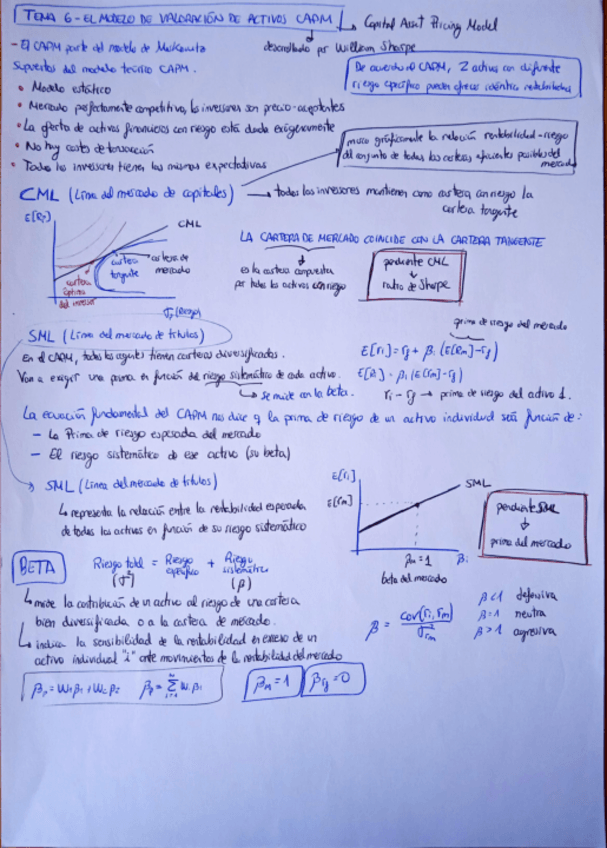 TEMA 6 - EL MODELO DE VALORACIÓN DE ACTIVOS CAPM
Capital Asset Pricing Model
desarrollado por William Sharpe
- El CAPM parte del modelo de Markowitz
Supuestos del modelo teórico CAPM.
De acuerdo al CAPM, 2 activos con diferente
riesgo específico pueden ofrecer idéntica rentabilidad
• Modelo estático
• Mercado perfectamente competitivo, los inversores son precio-aceptantes
• La oferta de activos financieros con riesgo está dada exógenamente
• No hay costes de transacción
• Todos los inversores tienen las mismas expectativas
gráficamente la relación rentabilidad-riesgo
del conjunto de todas las carteras eficientes posibles del
mercado
CML (Línea del mercado de capitales) → todos los inversores mantienen como cartera con riesgo la
cartera tangente
E[Rp]
CML
cartera tangente
cartera de mercado
cartera óptima del inversor
σp (Riesgo)
LA CARTERA DE MERCADO COINCIDE CON LA CARTERA TANGENTE
es la cartera compuesta
por todos los activos con riesgo
pendiente CML
↓
ratio de Sharpe
SML (Línea del mercado de títulos)
prima de riesgo del mercado
En el CAPM, todos los agentes tienen carteras diversificadas.
E[ri] = rf + βi (E[Rm] - rf)
Van a exigir una prima en función del riesgo sistemático de cada activo.
E[Ri] - βi (E[rm] - rf)
se mide con la beta.
ri - rf → prima de riesgo del activo 1.
La ecuación fundamental del CAPM nos dice q la prima de riesgo de un activo individual será función de:
- La Prima de riesgo esperada del mercado
- El riesgo sistemático de ese activo (su beta)
→ SML (Línea del mercado de títulos)
↳ representa la relación entre la rentabilidad esperada
de todos los activos en función de su riesgo sistemático
E[ri]
E[rm]
SML
βm = 1
βi
beta del mercado
pendiente SML
↓
prima del mercado
BETA
Riesgo total = Riesgo específico + Riesgo sistemático
(σ²) (β)
↳ mide la contribución de un activo al riesgo de una cartera
bien diversificada o a la cartera de mercado.
↳ indica la sensibilidad de la rentabilidad en exceso de un
activo individual "i" ante movimientos de la rentabilidad del mercado
β = cov(ri, rm) / σ²rm
β < 1 defensiva
β = 1 neutra
β > 1 agresiva
βp = W1β1 + W2β2 βp = Σ Wi βi
βm = 1
βrf = 0